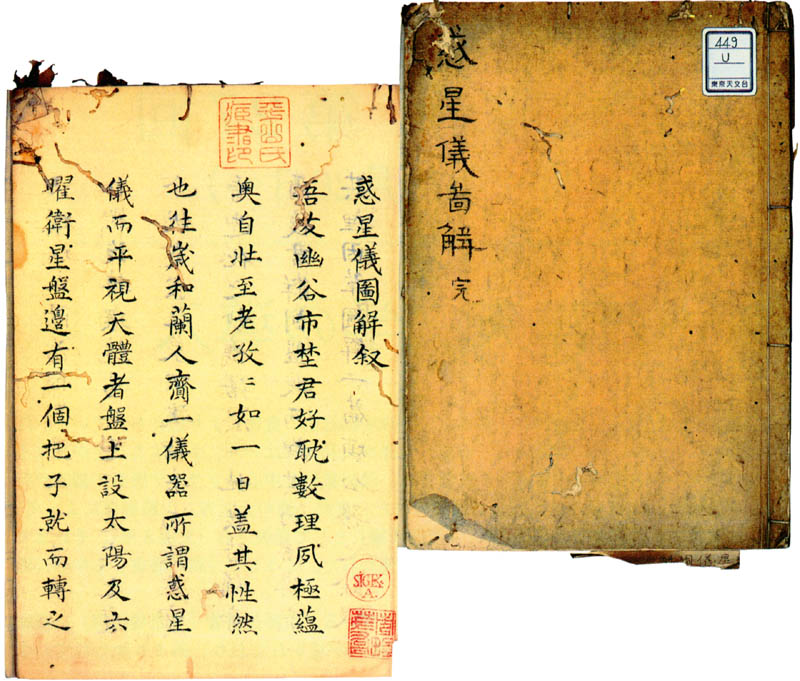 449
U
東京天文台
惑星儀啚解 完
惑星儀圖解叙
吾友幽谷市埜君好耽數理夙極蘊
奥自壯至老孜〻如一日盖其性然
也往歳和蘭人齎一儀器所謂惑星
儀而平視天體者盤上設太陽及六
曜衛星盤邊有一個把子就而轉之